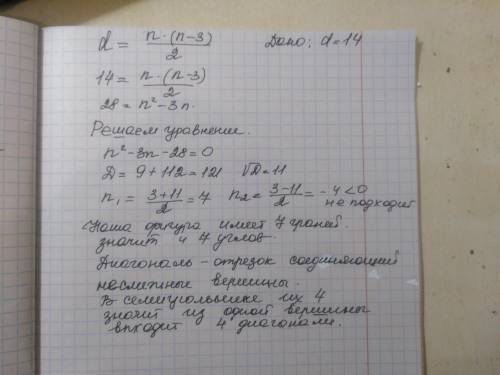 d = n·(n-3)/2 Дано: d=14
14 = n·(n-3)/2
28 = n²-3n.
Решаем уравнение.
n²-3n-28=0
D=9+112=121 √D=11
n₁ = (3+11)/2 = 7 n₂ = (3-11)/2 = -4<0 не подходит
Наша фигура имеет 7 граней.
значит и 7 углов.
Диагональ - отрезок соединяющий
несмежные вершины.
В семиугольнике их 4
значит из одной вершины
выходит 4 диагонали.